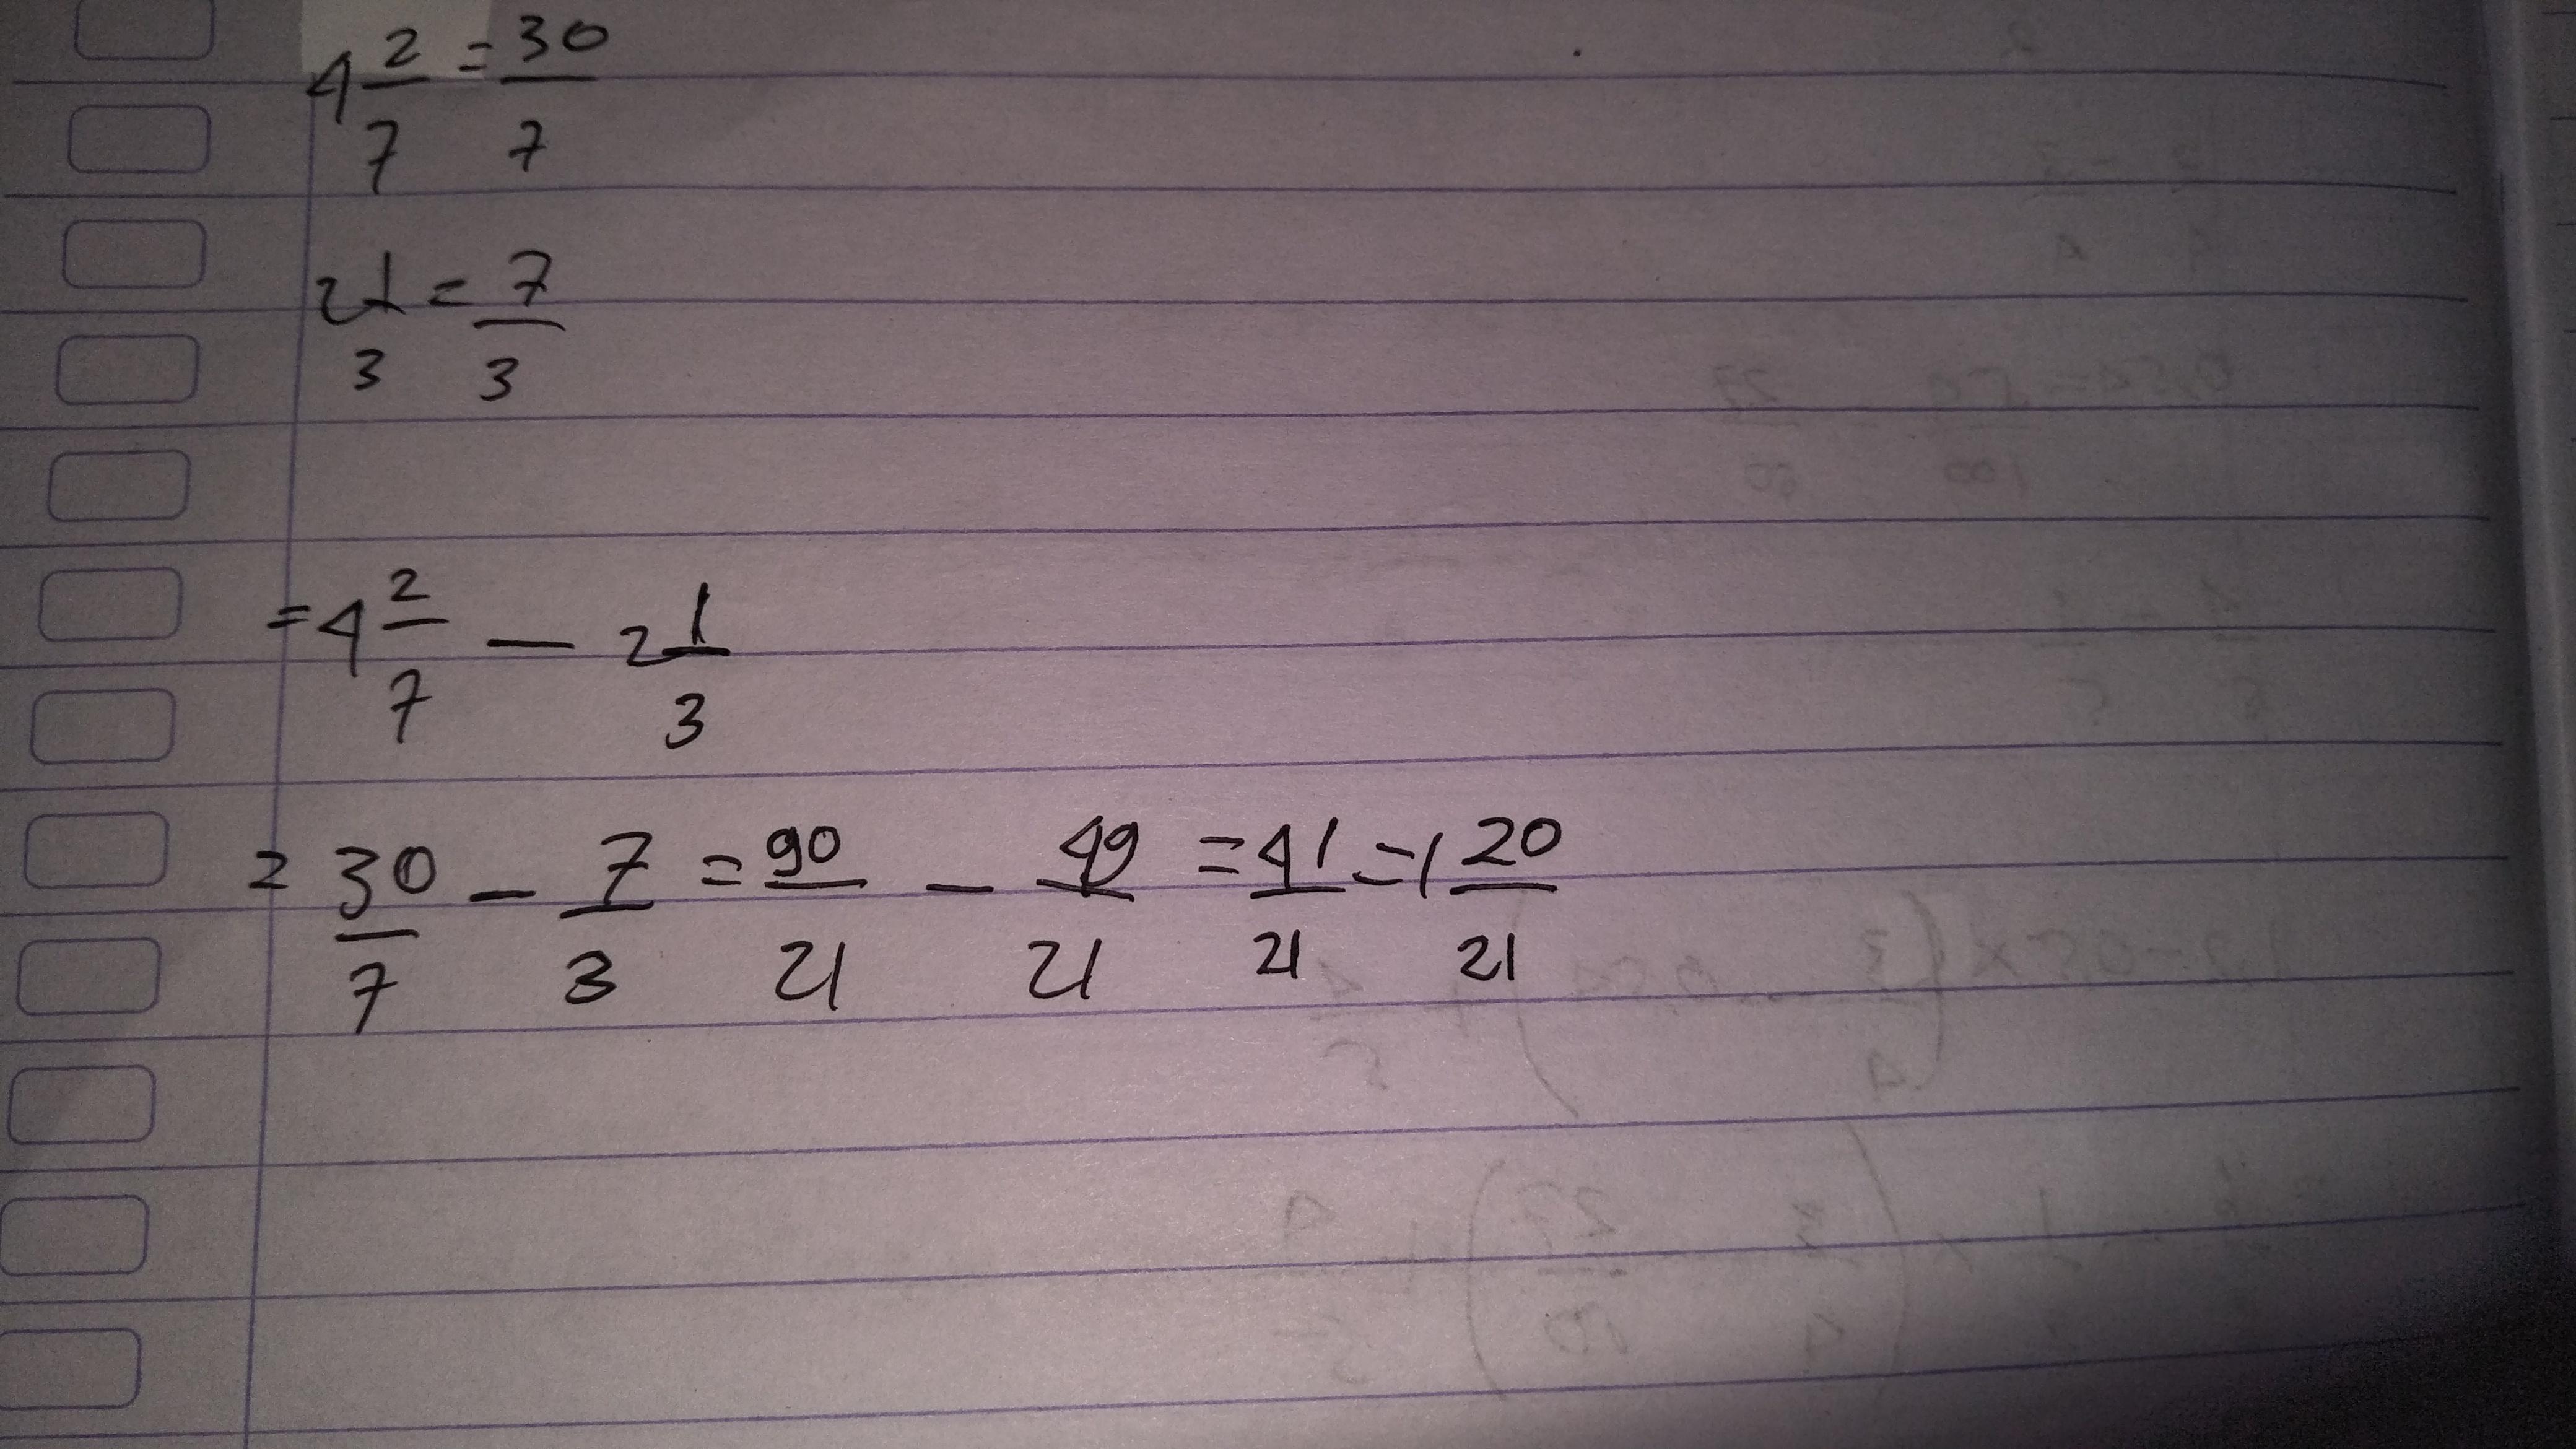 4 2/7 = 30/7
2 1/3 = 7/3
= 4 2/7 - 2 1/3
= 30/7 - 7/3 = 90/21 - 49/21 = 41/21 = 1 20/21